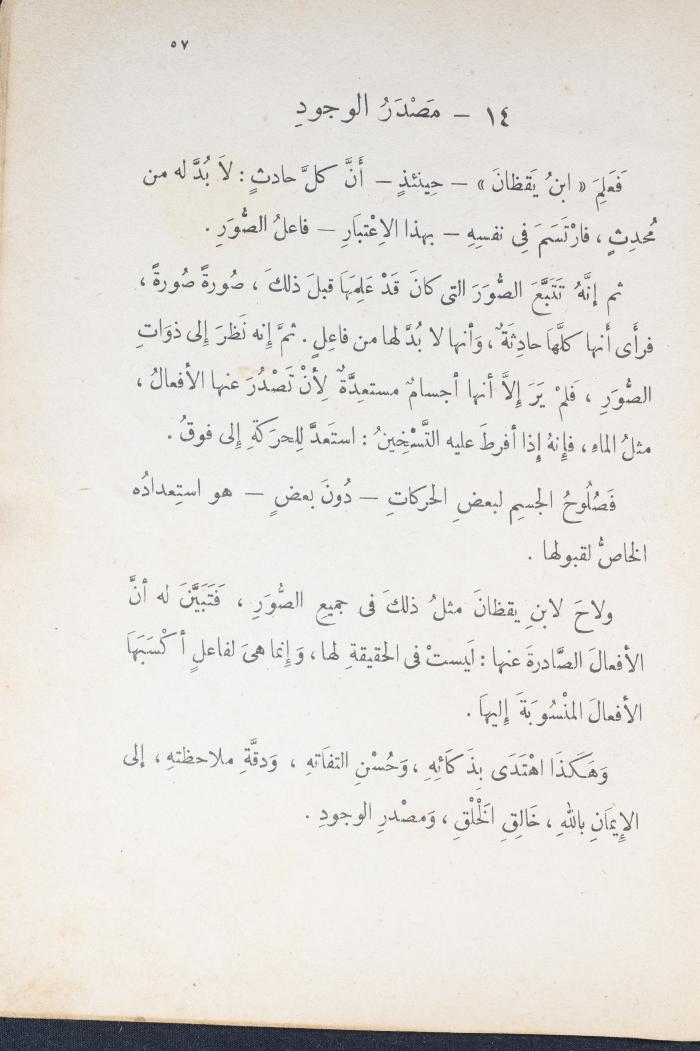 ٥٧
١٤ – مَصْدَرُ الوجودِ
فَعَلِمَ « ابنُ يَقظانَ » – حِينئذٍ – أَنَّ كلَّ حادثٍ : لاَ بُدَّ له من
مُحدِثٍ ، فارْتَسَمَ فِى نفسِهِ – بهذا الاِعْتبَارِ – فاعلُ الصُّوَرِ .
ثم إنَّهُ تَتَبَّعَ الصُّوَرَ التى كانَ قَدْ عَلِمَهَا قبلَ ذلكَ ، صُورةً صُورةً ،
فرأَى أَنها كلَّها حادِثَةٌ ، وَأنها لا بُدَّ لها من فاعِلٍ . ثمَّ إِنه نَظرَ إِلى ذوَاتِ
الصُّوَرِ ، فَلمْ يَرَ إِلاَّ أنها أجسامٌ مستعِدَّةٌ لِأنْ تَصْدُرَ عنها الأفعالُ ،
مثلُ الماءِ ، فإنهُ إِذا أفرطَ عليه التَّسْخِينُ : استَعدَّ لِلحرَكَةِ إِلى فوقُ .
فَصُلُوحُ الجسمِ لبعضِ الحركاتِ – دُونَ بعضٍ – هو استِعدادُه
الخاصُّ لقبولها .
ولاحَ لابنِ يقظانَ مثلُ ذلكَ فى جميع الصُّوَرِ ، فَتَبَيَّنَ له أنَّ
الأفعالَ الصَّادرةَ عنها : لَيستْ فى الحقيقةِ لها ، وَإِنما هىَ لفاعلٍ أكْسَبَهَا
الأفعالَ المنْسُوبَةَ إِليهاَ .
وَهَكَذَا اهْتَدَى بِذَكَائِهِ ، وَحُسْنِ التفَاتهِ ، وَدقَّةِ ملاحظتهِ ، إلى
الإِيمَانِ باللهِ ، خَالِقِ الخْلْقِ ، وَمصْدرِ الوجودِ .